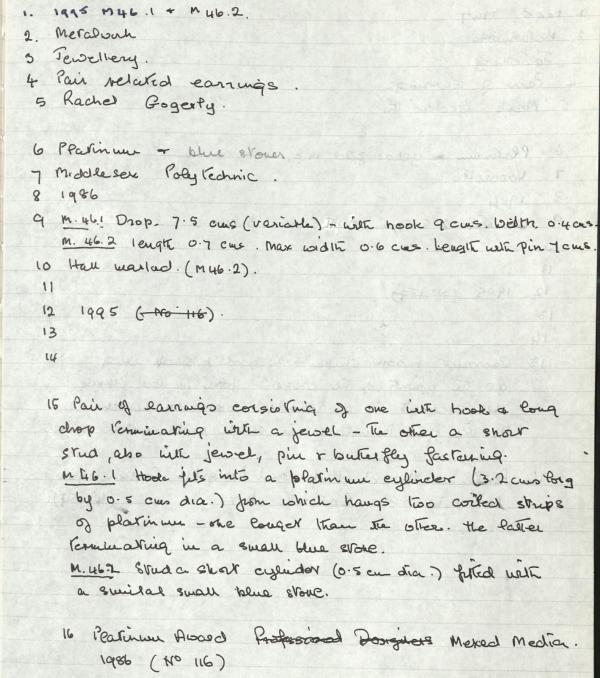 1. 1995 M46.1 + M46.2.
2. Metalwork
3 Jewellery.
4 Pair related earrings.
5 Rachel Gogerly.
6 Platinum + blue stones
7 Middlesex Polytechnic.
8 1986
9 M.46.1 Drop. 7.5 cms (variable) - with hook 9 cms. Width 0.4 cms.
M.46.2 length 0.7 cms. Max width 0.6 cms. Length with pin 1 cms.
10 Hall marked. (M46.2).
11
12 1995 (No 116).
13
14
15 Pair of earrings consisting of one with hook & long
drop terminating with a jewel - the other a short
stud, also with jewel, pin + butterfly fastening.
M46.1 Hook fits into a platinum cylinder (3.2 cms long
by 0.5 cms dia.) from which hangs two coiled strips
of platinum - one longer than the other. the latter
terminating in a small blue stone.
M.46.2 Stud a short cylinder (0.5 cm dia.) fitted with
a similar small blue stone.
16 Platinum Award Professional Designers Mixed Media.
1986 (No 116)